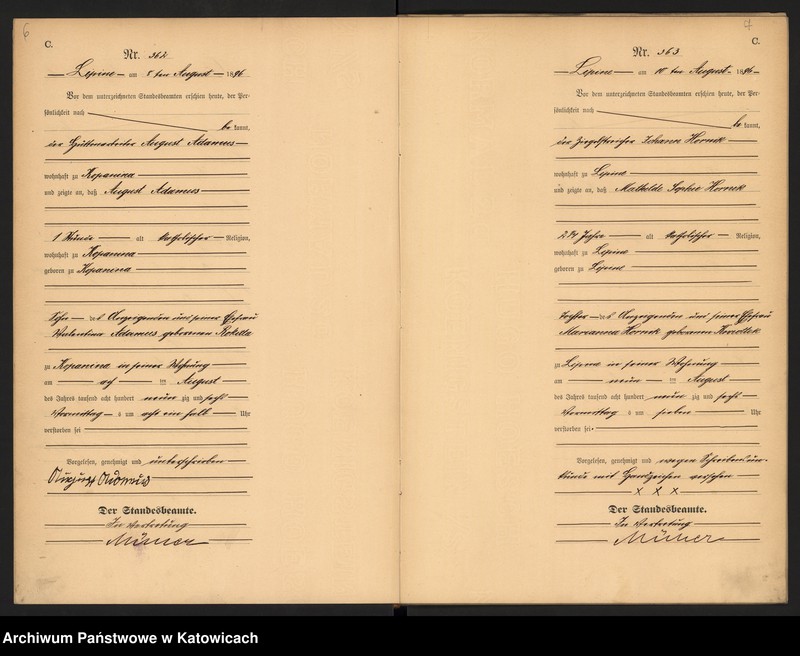 6
C.
Nr. 362
Lipine am ten August 1896
Vor dem unterzeichneten Standesbeamten erschien heute, der Per-
sönlichkeit nach
be kannt,
der Hüttenarbeiter August Adamus
wohnhaft zu Kopanina
und zeigte an, daß August Adamus
1 Stunde alt katholischer Religion,
wohnhaft zu Kopanina
geboren zu Kopanina
Sohn des Anzeigenden und seiner Ehefrau
Valentina Adamus geborenen
zu Kopanina in seiner Wohnung
am acht ten August
des Jahres tausend acht hundert neun zig und sechs
Vormittag s um acht ein halb Uhr
verstorben sei
Vorgelesen, genehmigt und unterschrieben
August Adamus
Der Standesbeamte.
In Vertretung
C.
Nr. 363
Lipine am 10 ten August 1896
Vor dem unterzeichneten Standesbeamten erschien heute, der Per-
sönlichkeit nach
be kannt,
der Ziegelstreicher Johann Hornik
wohnhaft zu Lipine
und zeigte an, daß Mathilde Sophie Hornik
Jahre alt katholischer Religion,
wohnhaft zu Lipine
geboren zu Lipine
Tochter des Anzeigenden und seiner Ehefrau
Marianna Hornik geborenen
zu Lipine in seiner Wohnung
am neun ten August
des Jahres tausend acht hundert neun zig und sechs
Vormittag s um sieben Uhr
verstorben sei.
Vorgelesen, genehmigt und wegen Schreibensun-
kunde mit Handzeichen versehen
X X X
Der Standesbeamte.
In Vertretung
Archiwum Państwowe w Katowicach